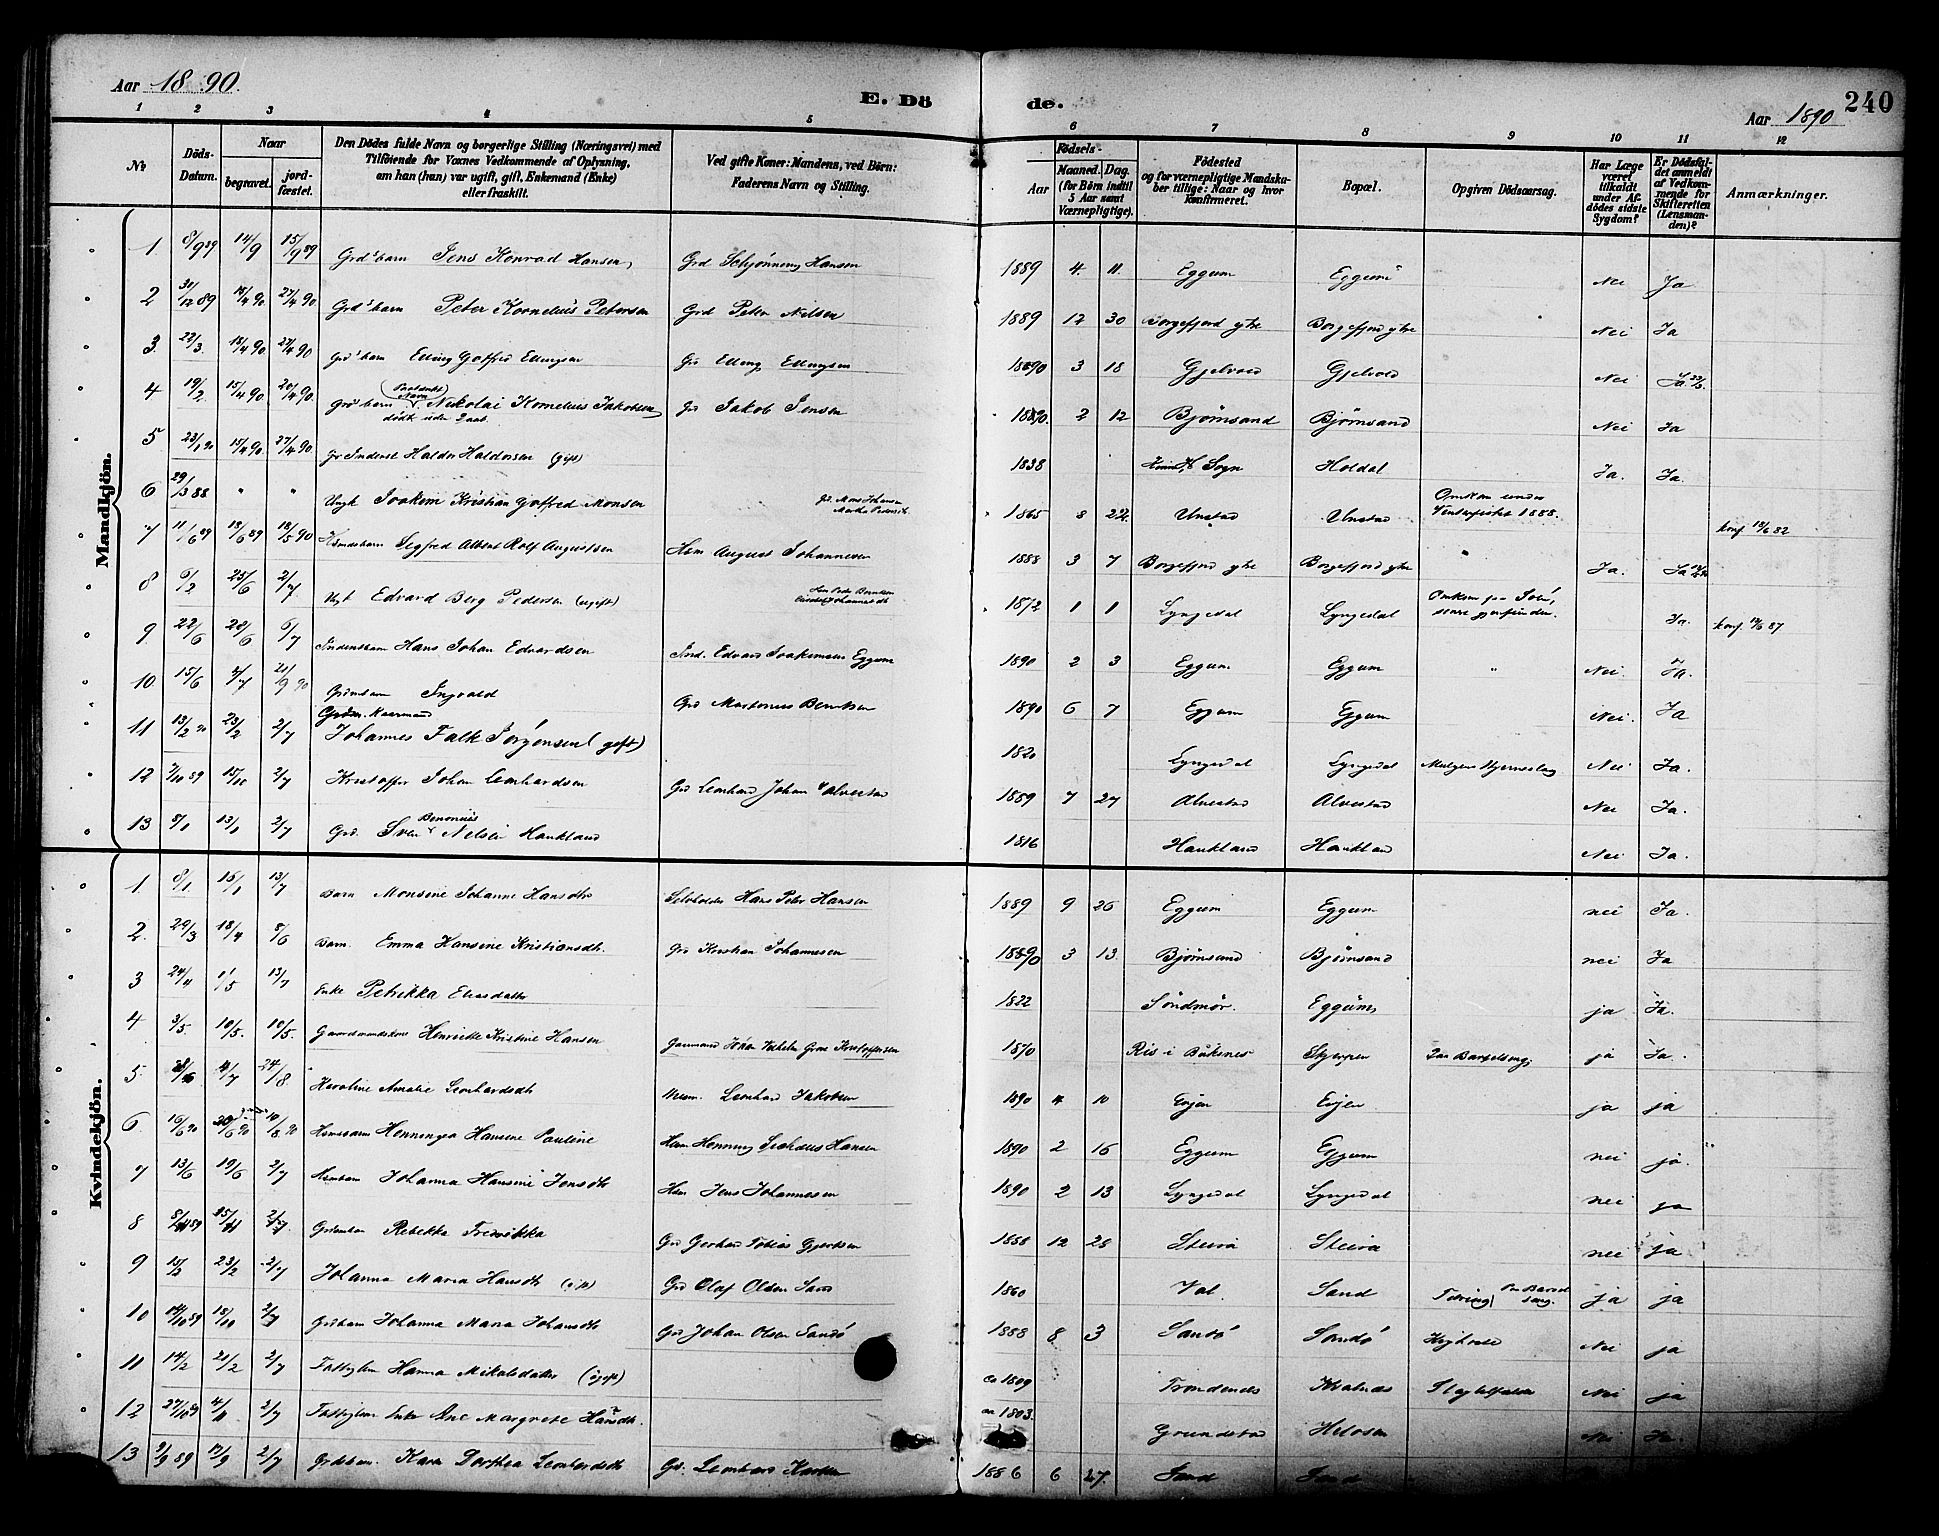 Aar 1890. E. Dö de. Aar 1890 240
1 2 3 4 5 6 7 8 9 10 11 12
№ Döds-Datum. Naar begravet. jordfæstet. Den Dödes fulde Navn og borgerlige Stilling (Næringsvei) med Tilföiende for Voxnes Vedkommende af Oplysning, om han (hun) var ugift, gift, Enkemand (Enke) eller fraskilt. Ved gifte Koner: Mandens, ved Börn: Faderens Navn og Stilling. Födsels- Aar Maaned. Dag. (for Börn indtil 5 Aar samt Værnepligtige). Födested og for værnepligtige Mandskaber tillige: Naar og hvor konfirmeret. Bopæl. Opgiven Dödsaarsag. Har Læge været tilkaldt under Afdödes sidste Sygdom? Er Dödsfaldet anmeldt af Vedkommende for Skifteretten (Lensmanden)? Anmærkninger.
Mandkjön.
1 8/9 89 14/9 15/9 89 Grd's barn Jens Konrad Hansen Grd Schjønning Hansen 1889 4. 11. Eggum Eggum Nei Ja
2 31/12 89 15/4 90 27/4 90 Grd's barn Peter Kornelius Petersen Grd Peter Nilsen 1889 12 30 Borgefjord ytre Borgefjord ytre Nei Ja
3. 22/3. 15/4 90 27/4 90 Grd's barn Elling Gotfred Ellingsen Gr Elling Ellingsen 1890 3 18 Gjelvold Gjelvold Nei Ja 22/3
4 19/2 15/4 90 20/4 90 Grd's barn Nikolai Kornelius Jakobsen Gr Jakob Jensen 1890. 2 12 Bjørnsand Bjørnsand Nei Ja
død uden Daab
5 15/4 90 27/4 90 Gr Inderst Haldor Haldorsen (gift) 1838 Sogn Holdal Ja. Ja.
6 29/3 88 " " Ungk Joakim Kristian Gotfred Monsen Gd. Mons Johansen 1865 8 22. Unstad Unstad Omkom under Vinterfisket 1888. konf 18/6 82
7 11/6 89 19/6 89 18/5 90 Hsmdsbarn Sigfred Albert Rolf Augustsen Hsm August Johannesen 1888 3 7 Borgefjord ytre Borgefjord ytre " Ja. Ja
8 6/2 25/6 2/7 Ungk Edvard Berg Pedersen (ugift) 1872 1 1 Lyngedal Lyngedal Omkom paa Søen, Ja. konf 87
9 22/6 28/6 6/7 Inderstbarn Hans Johan Edvardsen Ind. Edvard Joakimsen Eggum 1890 2 3 Eggum Eggum " Nei Ja.
10. 15/6 2/7 21/9 90 Grdmbarn Ingvald Grd Martinus Berntsen 1890 6 7 Eggum Eggum Nei. Ja
11 13/2 90 23/2 2/7 Johannes Falk Jørgensen (gift) 1820 Lyngedal Lyngedal Nei Ja.
12 7/10 89 15/10 2/7 Kristoffer Johan Leonhardsen Grd Leonhard Johan Alvestad 1889 7 27 Alvestad Alvestad Nei Ja.
13 5/1 13/1 2/7 Grd. Sven Benonius Nelsen Haukland 1816 Haukland Haukland Nei Ja.
Kvindekjön.
1 8/1 15/1 13/7 Barn Monsine Johanne Hansdtr Selveholder Hans Peter Hansen 1889 9 26 Eggum Eggum nei Ja.
2. 29/3 18/4 8/6 Barn. Emma Hansine Kristiansdt. Grd Kristian Johannesen 1890 3 13. Bjørnsand Bjørnsand nei Ja
3 24/4 1/5 13/7 Enke Petrikka Eliasdatter 1822 Søndmør. Eggum ja Ja.
4 3/5 10/5. 10/5. Gaardmandskone Henriette Kristine Hansen 1870 Ris i Buksnes Skjerpen Paa Barselseng ja Ja.
5. 4/7 24/8 Karoline Amalie Leonhardsdt Leonhard Jakobsen 1890 4 10 Evjen Evjen ja ja
6. 16/6 90 10/8 90 Hsmsbarn Henningea Hansine Pauline Hsm Henning Hansen 1890 2 16 Eggum Eggum nei ja.
7 13/6 19/6 2/7 Hsmbarn Johanna Hansine Jensdt Hsm Jens Johannesen 1890 2 13 Lyngedal Lyngedal nei ja
8 15/11 2/7. Grdmbarn Rebekka Fredrikka Grd Gerhard Tobias Gjertsen 1888 12 28 Steira Steira nei ja
9 15/2 23/2 2/7 Johanna Maria Hansdt (gift) Grd Olaf Olsen Sand 1860 Val Sand Tæring Paa Barselseng. ja ja
10 14/10 89 18/10 2/7 Grdbarn Johanna Maria Johansdt Grd Johan Olsen Sandø 1888 8 3 Sandø Sandø Kighoste Nei ja
11 14/2 21/2 2/7 Fattiglem Hanna Mikalsdatter (ugift) ca 1809 Trondenes Slagtilfælde Nei ja
12 27/10 89 4/11 2/7 Fattiglem Enke Ane Margrete Hansdt. ca 1803. Grundstad Nei Ja.
13 9/9 89 17/9 2/7 Grdsbarn. Karen Dorthea Leonhardsdt Gd. Leonhard 1886 6 27. Sand Sand